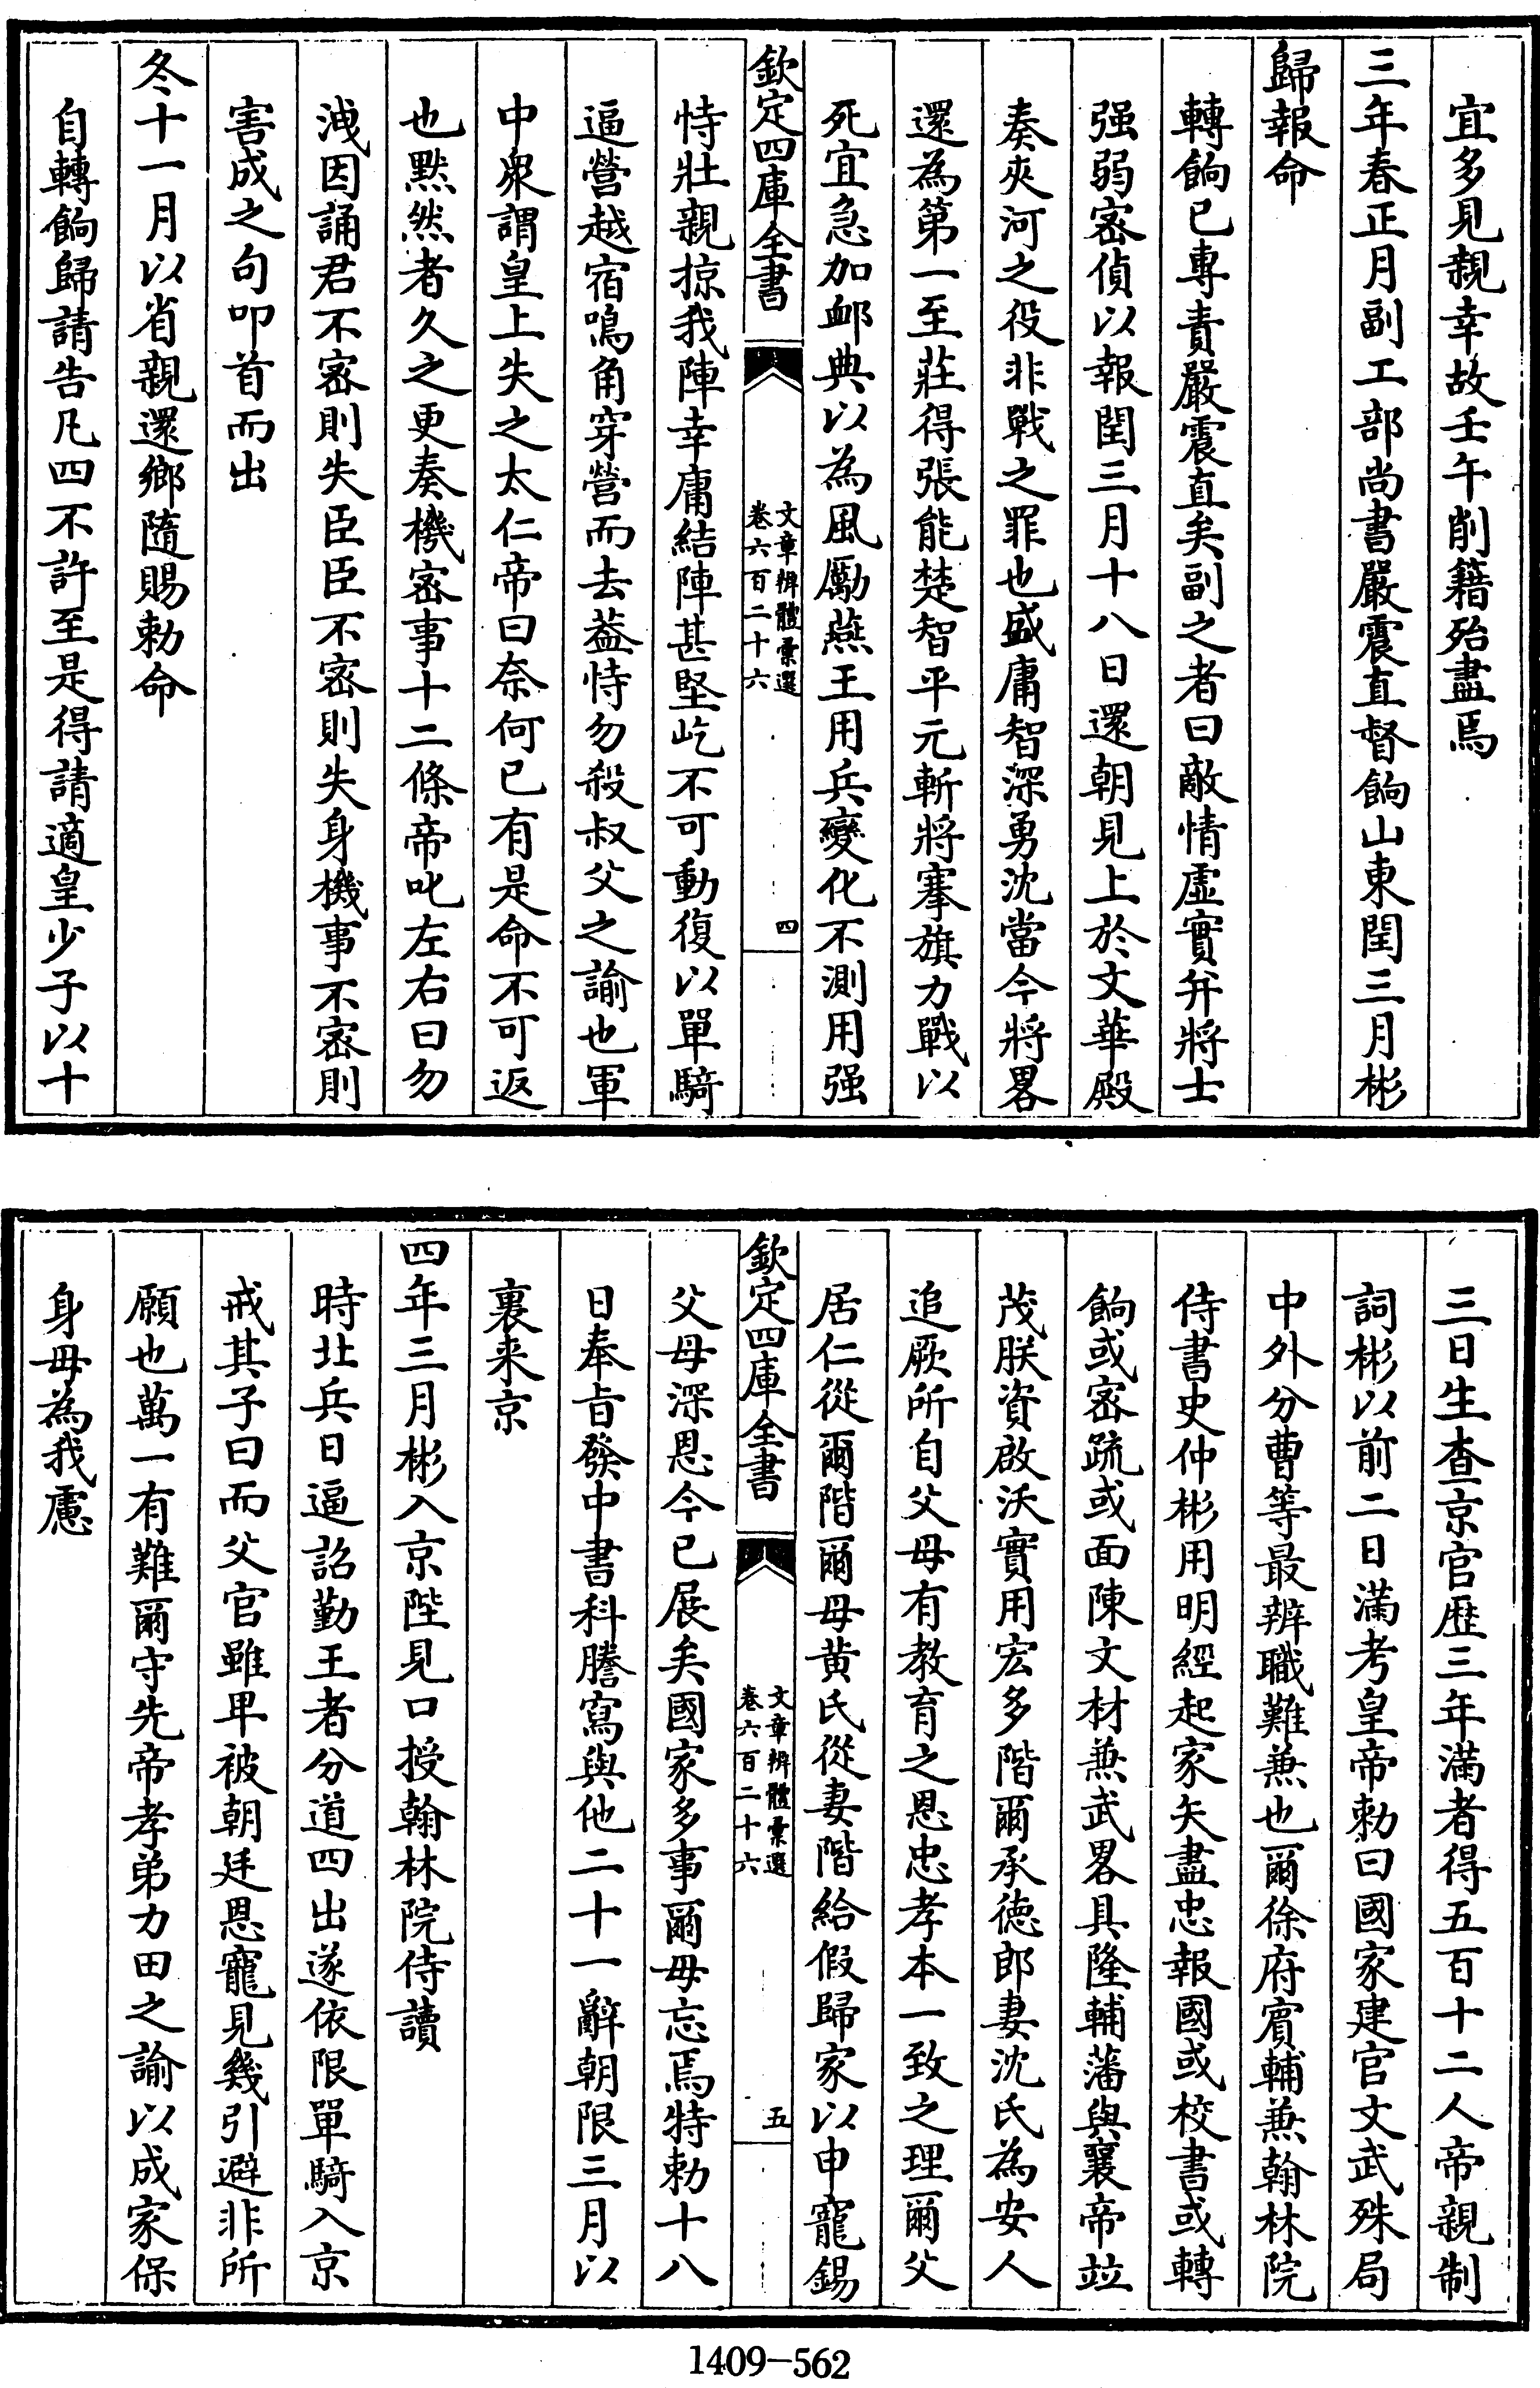 宜多見親幸故壬午削籍殆盡焉
三年春正月副工部尚書嚴震直督餉山東閏三月彬
歸報命
轉餉已專責嚴震直矣副之者曰敵情虛實弁將士
强弱密偵以報閏三月十八日還朝見上於文華殿
奏夾河之役非戰之罪也盛庸智深勇沈當今將畧
還為第一至莊得張能楚智平元斬將搴旗力戰以
死宜急加䘏典以為風勵燕王用兵變化不測用强
欽定四庫全書
文章辨體彙選
卷六百二十六
四
恃壯親掠我陣幸庸結陣甚堅屹不可動復以單騎
逼營越宿鳴角穿營而去葢恃勿殺叔父之諭也軍
中衆謂皇上失之太仁帝曰奈何已有是命不可返
也黙然者久之更奏機密事十二條帝叱左右曰勿
洩因誦君不密則失臣臣不密則失身機事不密則
害成之句叩首而出
冬十一月以省親還鄉隨賜勅命
自轉餉歸請告凡四不許至是得請適皇少子以十
三日生查京官歷三年滿者得五百十二人帝親制
詞彬以前二日滿考皇帝勅曰國家建官文武殊局
中外分曹等最辨職難兼也爾徐府賓輔兼翰林院
侍書史仲彬用明經起家矢盡忠報國或校書或轉
餉或密疏或面陳文材兼武畧具隆輔藩與襄帝竝
茂朕資啟沃實用宏多階爾承德郎妻沈氏為安人
追厥所自父母有教育之恩忠孝本一致之理爾父
居仁從爾階爾母黄氏從妻階給假歸家以申寵錫
欽定四庫全書
文章辨體彙選
卷六百二十六
五
父母深恩今已展矣國家多事爾毋忘焉特勅十八
日奉旨發中書科謄寫與他二十一辭朝限三月以
裏来京
四年三月彬入京陛見口授翰林院侍讀
時北兵日逼詔勤王者分道四出遂依限單騎入京
戒其子曰而父官雖卑被朝廷恩寵見幾引避非所
願也萬一有難爾守先帝孝弟力田之諭以成家保
身毋為我慮
1409-562